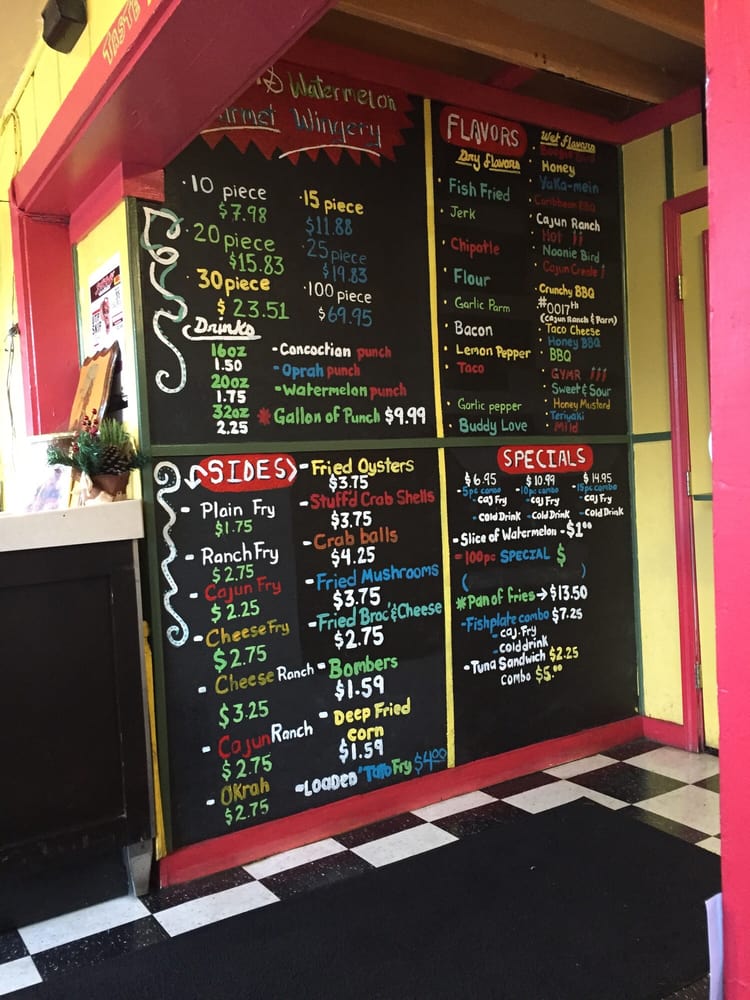 TASTE
& Watermelon
Wingery
10 piece
$7.98
15 piece
$11.88
20 piece
$15.83
25 piece
$19.83
30 piece
$23.51
100 piece
$69.95
Drinks
16oz
1.50
20oz
1.75
32oz
2.25
- Concoction punch
- Oprah punch
- Watermelon punch
* Gallon of Punch $9.99
FLAVORS
Dry Flavors
Fish Fried
Jerk
Chipotle
Flour
Garlic Parm
Bacon
Lemon Pepper
Taco
Garlic pepper
Buddy Love
Wet Flavors
Honey
YaKa-mein
Caribbean BBQ
Cajun Ranch
Hot
Noonie Bird
Cajun Creole
Crunchy BBQ
#0017th
(Cajun Ranch & Parm)
Taco Cheese
Honey BBQ
BBQ
GYMR
Sweet & Sour
Honey Mustard
Teriyaki
Mild
SIDES
- Plain Fry
$1.75
- Ranch Fry
$2.75
- Cajun Fry
$2.25
- Cheese Fry
$2.75
- Cheese Ranch
$3.25
- Cajun Ranch
$2.75
- OKrah
$2.75
- Fried Oysters
$3.75
- Stuff'd Crab Shells
$3.75
- Crab balls
$4.25
- Fried Mushrooms
$3.75
- Fried Broc' & Cheese
$2.75
- Bombers
$1.59
- Deep Fried
corn
$1.59
- LOADED 'Tato Fry $4.00
SPECIALS
$6.95
- 5pc combo
- caj Fry
- cold Drink
$10.99
10pc combo
- caj Fry
- Cold Drink
$14.95
15pc combo
- caj Fry
- Cold Drink
- Slice of Watermelon - $1.00
- 100pc SPECIAL $
( )
* Pan of fries → $13.50
- Fishplate combo $7.25
- caj. Fry
- cold drink
- Tuna Sandwich $2.25
combo $5.00